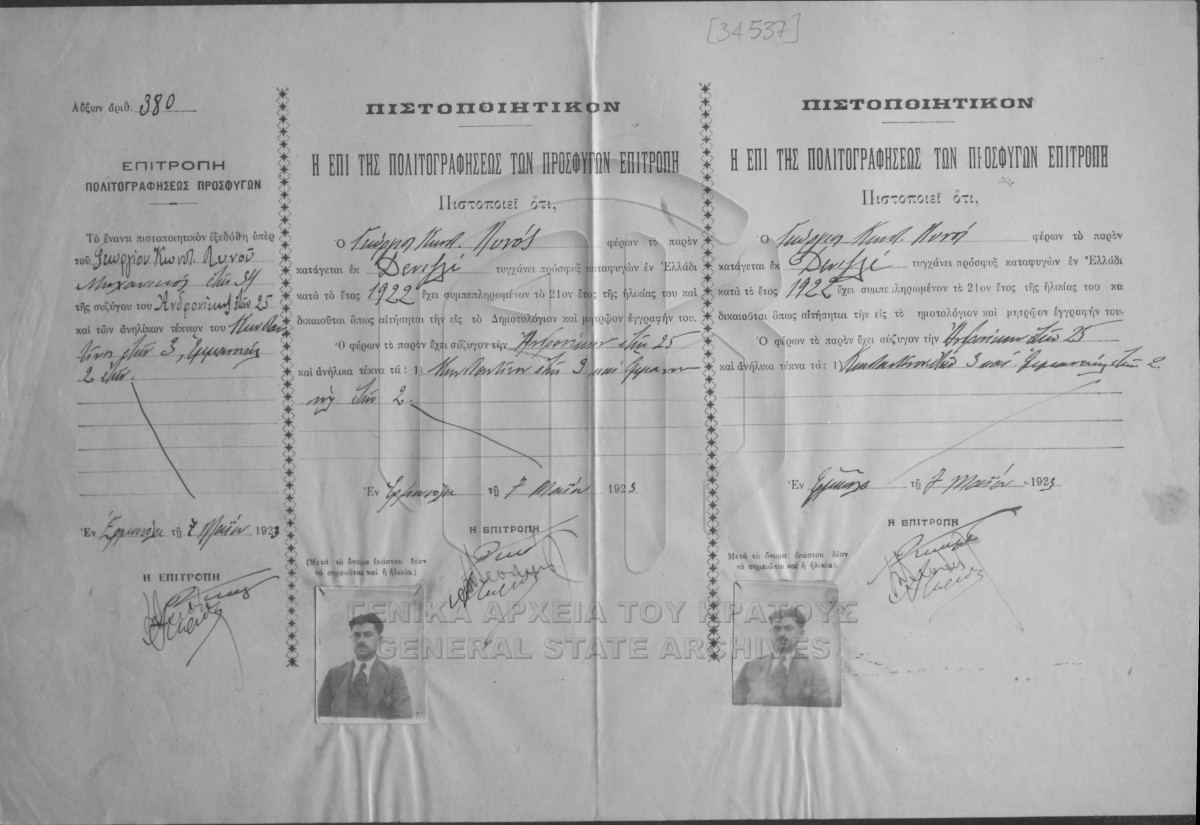 [34537]
Αὔξων ἀριθ. 380
ΕΠΙΤΡΟΠΗ
ΠΟΛΙΤΟΓΡΑΦΗΣΕΩΣ ΠΡΟΣΦΥΓΩΝ
Τὸ ἔναντι πιστοποιητικὸν ἐξεδόθη ὑπὲρ
τοῦ Γεωργίου Κωνστ.
Μηχανικός ἐτῶν 34
τῆς συζύγου του Ἀνδρονίκης ἐτῶν 25
καὶ τῶν ἀνηλίκων τέκνων του Κωνσταν
τῖνος ἐτῶν 3,
2 ἐτῶν.
Ἐν Ἑρμουπόλει τῇ 7 Μαΐου 1923
Η ΕΠΙΤΡΟΠΗ
ΠΙΣΤΟΠΟΙΗΤΙΚΟΝ
Η ΕΠΙ ΤΗΣ ΠΟΛΙΤΟΓΡΑΦΗΣΕΩΣ ΤΩΝ ΠΡΟΣΦΥΓΩΝ ΕΠΙΤΡΟΠΗ
Πιστοποιεῖ ὅτι,
Ὁ Γεώργιος Κωνστ. φέρων τὸ παρὸν
κατάγεται ἐκ Δενιζλὲ τυγχάνει πρόσφυξ καταφυγὼν ἐν Ἑλλάδι
κατὰ τὸ ἔτος 1922 ἔχει συμπεπληρωμένον τὸ 21ον ἔτος τῆς ἡλικίας του καὶ
δικαιοῦται ὅπως αἰτήσηται τὴν εἰς τὸ Δημοτολόγιον καὶ μητρῷον ἐγγραφήν του.
Ὁ φέρων τὸ παρὸν ἔχει σύζυγον τὴν Ἀνδρονίκην ἐτῶν 25
καὶ ἀνήλικα τέκνα τά: 1) Κωνσταντῖνον ἐτῶν 3 καὶ
ἐτῶν 2.
Ἐν Ἑρμουπόλει τῇ 7 Μαΐου 1923
Η ΕΠΙΤΡΟΠΗ
(Μετὰ τὸ ὄνομα ἑκάστου δέον
νὰ σημειοῦται καὶ ἡ ἡλικία.)
ΠΙΣΤΟΠΟΙΗΤΙΚΟΝ
Η ΕΠΙ ΤΗΣ ΠΟΛΙΤΟΓΡΑΦΗΣΕΩΣ ΤΩΝ ΠΡΟΣΦΥΓΩΝ ΕΠΙΤΡΟΠΗ
Πιστοποιεῖ ὅτι,
Ὁ Γεώργιος Κωνστ. φέρων τὸ παρὸν
κατάγεται ἐκ Δενιζλὲ τυγχάνει πρόσφυξ καταφυγὼν ἐν Ἑλλάδι
κατὰ τὸ ἔτος 1922 ἔχει συμπεπληρωμένον τὸ 21ον ἔτος τῆς ἡλικίας του κα
δικαιοῦται ὅπως αἰτήσηται τὴν εἰς τὸ ημοτολόγιον καὶ μητρῷον ἐγγραφήν του.
Ὁ φέρων τὸ παρὸν ἔχει σύζυγον τὴν Ἀνδρονίκην ἐτῶν 25
καὶ ἀνήλικα τέκνα τά: 1) Κωνσταντῖνον ἐτῶν 3 καὶ ἐτῶν 2
Ἐν Ἑρμουπόλει τῇ 7 Μαΐου 1923
Η ΕΠΙΤΡΟΠΗ
Μετὰ τὸ ὄνομα ἑκάστου δέον
νὰ σημειοῦται καὶ ἡ ἡλικία).
ΓΕΝΙΚΑ ΑΡΧΕΙΑ ΤΟΥ ΚΡΑΤΟΥΣ
GENERAL STATE ARCHIVES